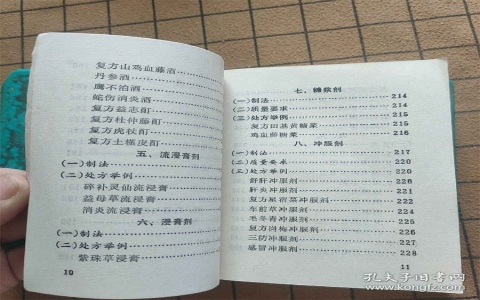 复方山鸡血藤酒
丹参酒
鹰不泊酒
蛇伤消炎酒
复方益志酊
复方杜仲藤酊
复方虎杖酊
复方土槿皮酊
五、流浸膏剂
(一)制法
(二)处方举例
碎补灵仙流浸膏
益母草流浸膏
消炎流浸膏
六、浸膏剂
(一)制法
(二)处方举例
紫珠草浸膏
10
七、糖浆剂
(一)制法 214
(二)质量要求 214
(三)处方举例 215
复方田基黄糖浆 215
鸡血藤糖浆 216
八、冲服剂
(一)制法 217
(二)质量要求 220
(三)处方举例 220
舒肝冲服剂 221
肝炎冲服剂 222
复方星宿菜冲服剂 223
车前草冲服剂 224
毛冬青冲服剂 225
复方岗梅冲服剂 226
三防冲服剂 227
感冒冲服剂 228
11
孔夫子旧书网
www.kongfz.com